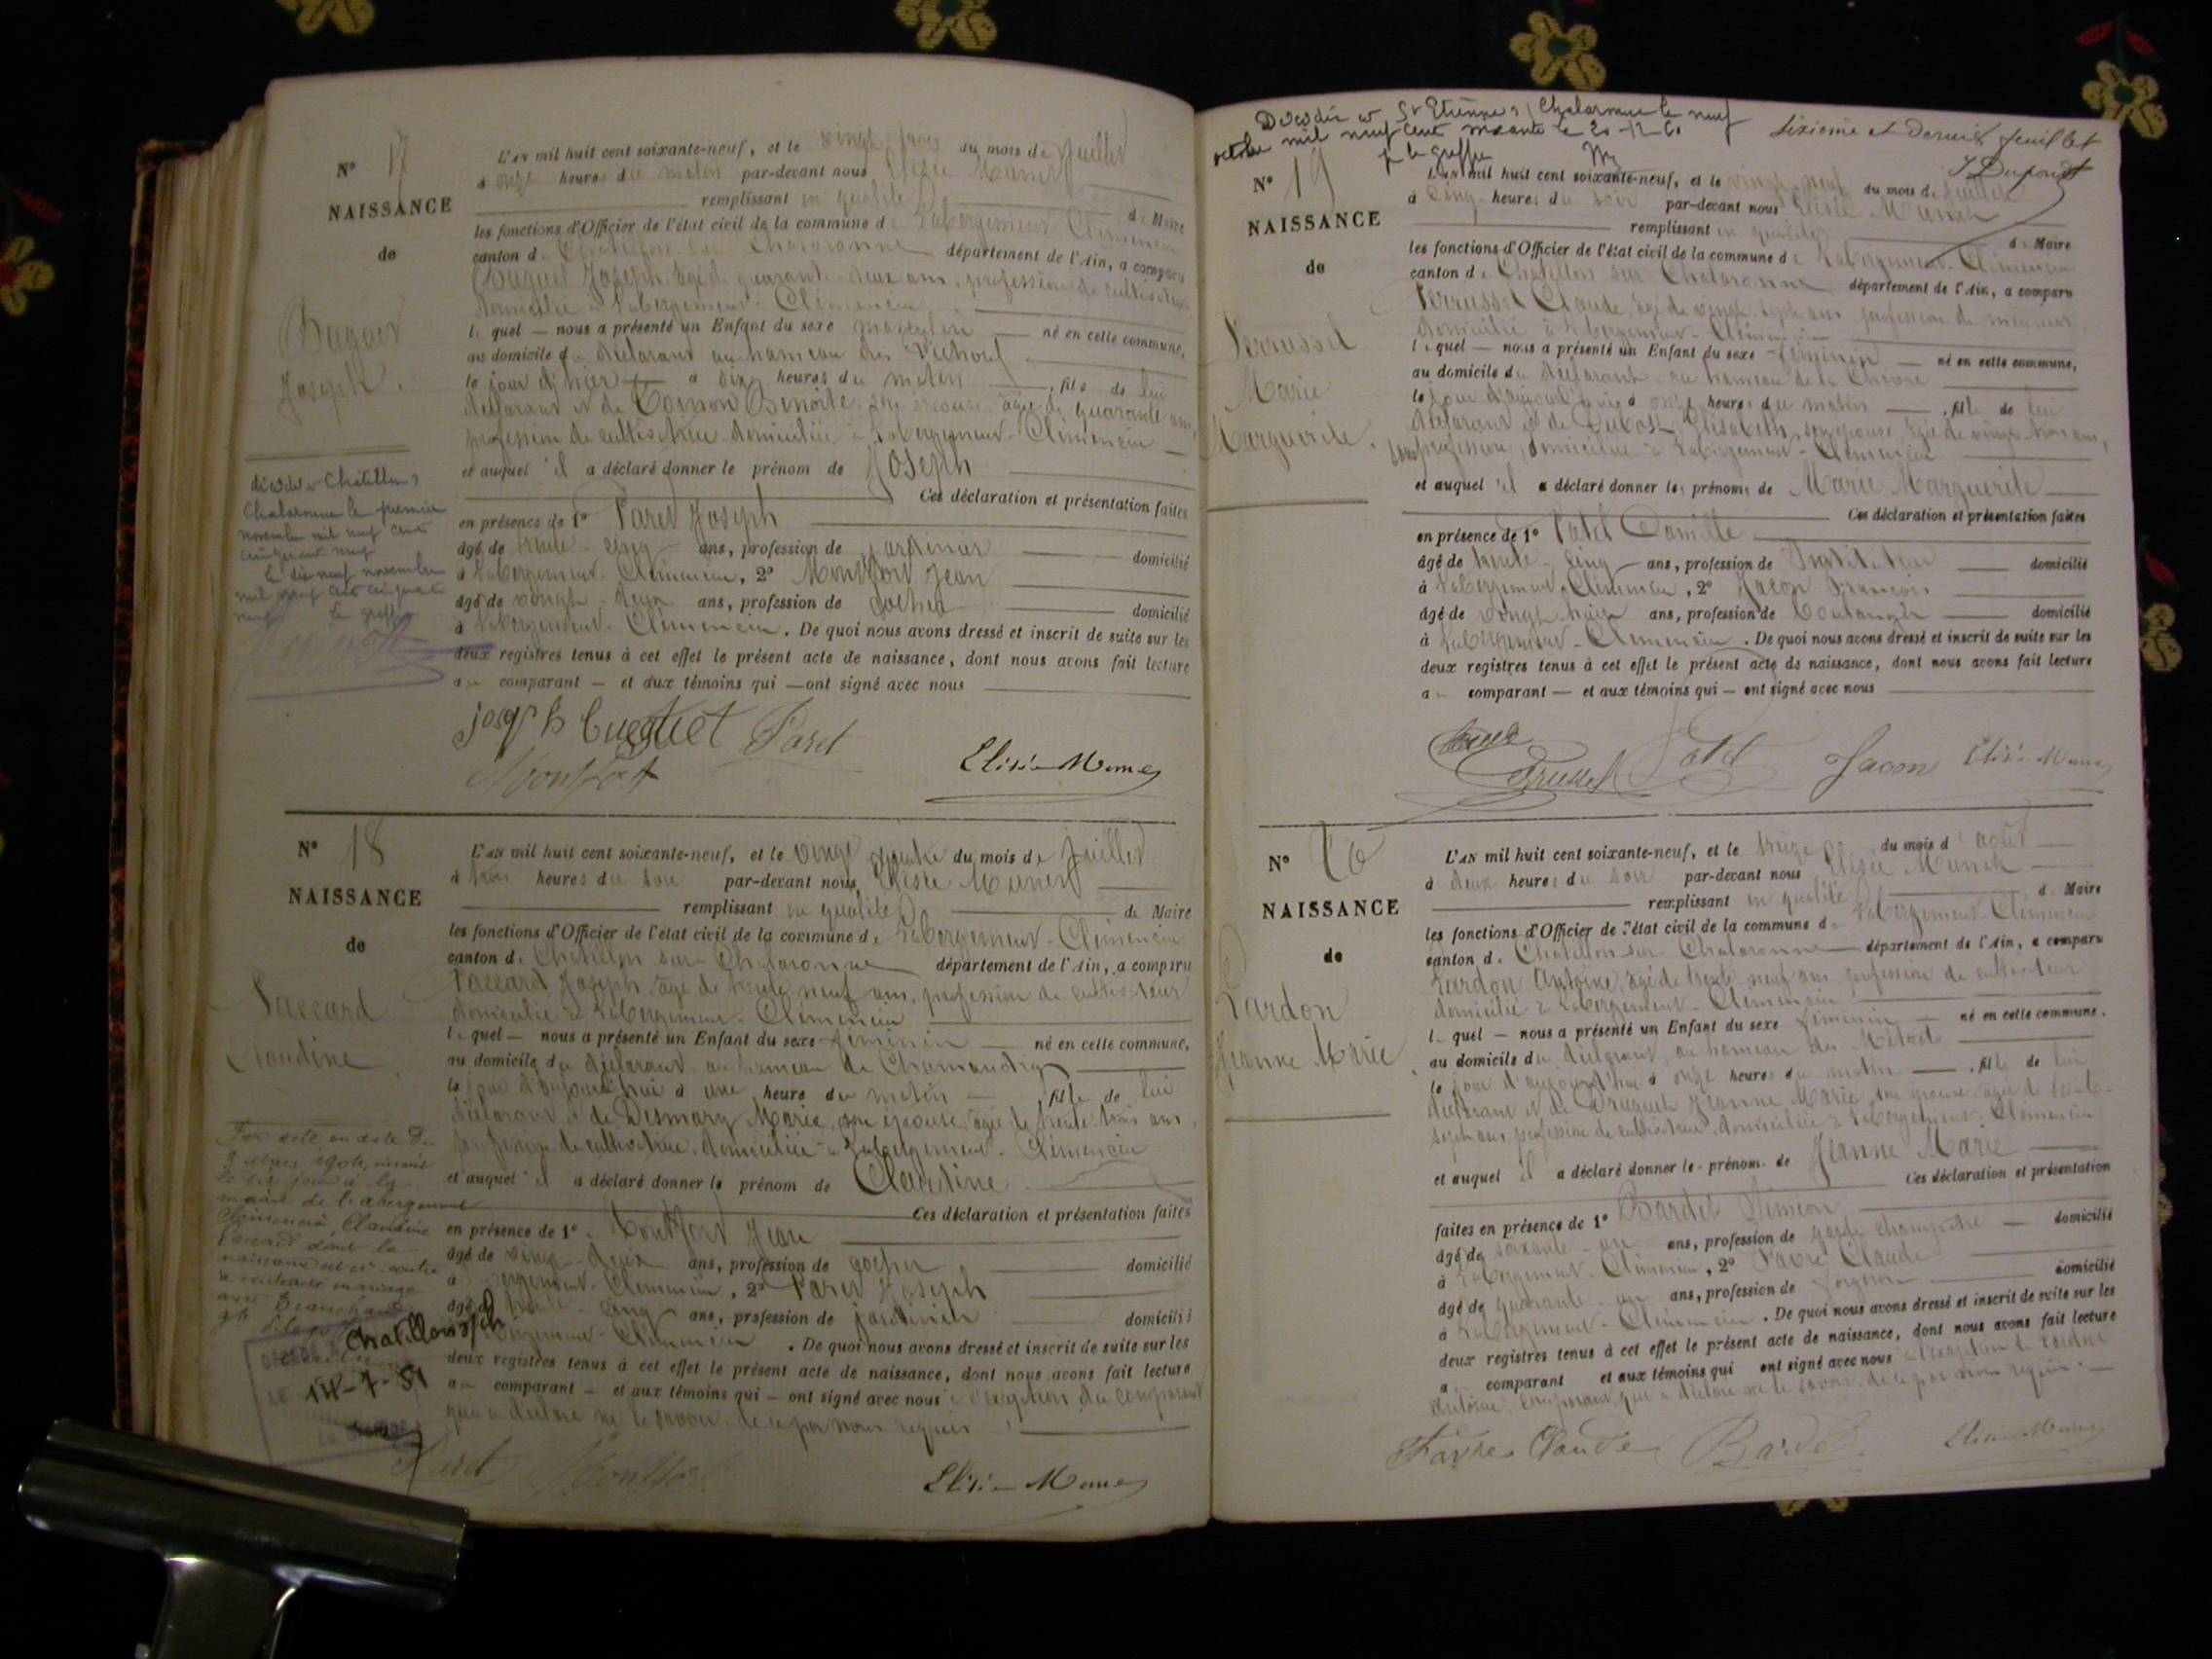 N° 17
NAISSANCE
de
Buguet
Joseph.
décédé à Chatillon s
Chalaronne le premier
novembre mil neuf cent
cinquante neuf
le dix neuf novembre
mil neuf cent cinquante
neuf Le greffier
L'AN mil huit cent soixante-neuf, et le vingt trois du mois de Juillet
à onze heures du matin par-devant nous Elisée
remplissant en qualité de Maire
les fonctions d'Officier de l'état civil de la commune de Labergement-Clémencia
canton de Chatillon sur Chalaronne département de l'Ain, a comparu
Buguet Joseph, âgé de quarante-deux ans, profession de cultivateur
domicilié à Labergement-Clémencia
lequel — nous a présenté un Enfant du sexe masculin — né en cette commune,
au domicile du déclarant au hameau des
le jour d'hier à six heures du matin, fils de lui
déclarant et de Benoite, son épouse, âgée de quarante ans
profession de cultivatrice domiciliée à Labergement-Clémencia
et auquel il a déclaré donner le prénom de Joseph
Ces déclaration et présentation faites
en présence de 1° Paret Joseph
âgé de trente-cinq ans, profession de jardinier domicilié
à Labergement-Clémencia, 2° Montfort Jean
âgé de vingt-deux ans, profession de cocher domicilié
à Labergement-Clémencia. De quoi nous avons dressé et inscrit de suite sur les
deux registres tenus à cet effet le présent acte de naissance, dont nous avons fait lecture
au comparant — et aux témoins qui — ont signé avec nous
Joseph Buguet Paret
Montfort Elisée
N° 18
NAISSANCE
de
Paccard
Claudine
Par acte en date du
mars inscrit
le dix jour à la
mairie de Labergement
Clémencia, Claudine
Paccard dont la
naissance est ci-contre
a contracté mariage
avec
Chatillon s/ch
14-7-51
L'AN mil huit cent soixante-neuf, et le vingt quatre du mois de Juillet
à trois heures du soir par-devant nous Elisée
remplissant en qualité de Maire
les fonctions d'Officier de l'état civil de la commune de Labergement-Clémencia
canton de Chatillon sur Chalaronne département de l'Ain, a comparu
Paccard Joseph, âgé de trente neuf ans, profession de cultivateur
domicilié à Labergement-Clémencia
lequel — nous a présenté un Enfant du sexe féminin — né en cette commune,
au domicile du déclarant au hameau de
le jour d'aujourd'hui à une heure du matin — fille de lui
déclarant et de Marie, son épouse, âgée de trente trois ans,
profession de cultivatrice, domiciliée à Labergement-Clémencia
et auquel il a déclaré donner le prénom de Claudine
Ces déclaration et présentation faites
en présence de 1° Montfort Jean
âgé de vingt-deux ans, profession de cocher domicilié
à Labergement-Clémencia, 2° Paret Joseph
âgé de trente-cinq ans, profession de jardinier domicilié
à Labergement-Clémencia. De quoi nous avons dressé et inscrit de suite sur les
deux registres tenus à cet effet le présent acte de naissance, dont nous avons fait lecture
au comparant — et aux témoins qui — ont signé avec nous à l'exception du comparant
qui a déclaré ne le savoir, de ce par nous requis
Paret Montfort Elisée
Décédée à St Etienne s/ Chalaronne le neuf
octobre mil neuf cent soixante le 20-12-60
p le greffier
sixième et dernier feuillet
Dupond
N° 19
NAISSANCE
de
Perrussel
Marie
Marguerite.
L'AN mil huit cent soixante-neuf, et le vingt-neuf du mois de Juillet
à cinq heures du soir par-devant nous Elisée
remplissant en qualité de Maire
les fonctions d'Officier de l'état civil de la commune de Labergement-Clémencia
canton de Chatillon sur Chalaronne département de l'Ain, a comparu
Perrussel Claude, âgé de vingt-sept ans, profession de
domicilié à Labergement-Clémencia
lequel — nous a présenté un Enfant du sexe féminin — né en cette commune,
au domicile du déclarant au hameau de la
le jour d'aujourd'hui à onze heures du matin, fille de lui
déclarant et de Dubost Elisabeth, son épouse, âgée de vingt-trois ans,
sans profession, domiciliée à Labergement-Clémencia
et auquel il a déclaré donner les prénoms de Marie Marguerite
Ces déclaration et présentation faites
en présence de 1° Patel Camille
âgé de trente-cinq ans, profession de Instituteur domicilié
à Labergement-Clémencia, 2° Jacon François
âgé de vingt-huit ans, profession de boulanger domicilié
à Labergement-Clémencia. De quoi nous avons dressé et inscrit de suite sur les
deux registres tenus à cet effet le présent acte de naissance, dont nous avons fait lecture
au comparant — et aux témoins qui — ont signé avec nous
Perrussel Patel Jacon Elisée
N° 20
NAISSANCE
de
Lardon
Jeanne Marie.
L'AN mil huit cent soixante-neuf, et le treize du mois d'août
à deux heures du soir par-devant nous Elisée
remplissant en qualité de Maire
les fonctions d'Officier de l'état civil de la commune de Labergement-Clémencia
canton de Chatillon sur Chalaronne département de l'Ain, a comparu
Lardon Antoine, âgé de trente neuf ans, profession de cultivateur
domicilié à Labergement-Clémencia
lequel — nous a présenté un Enfant du sexe féminin — né en cette commune,
au domicile du déclarant, au hameau des
le jour d'aujourd'hui à onze heures du matin, fille de lui
déclarant et de Jeanne Marie, son épouse, âgée de trente-
sept ans, profession de cultivatrice, domiciliée à Labergement-Clémencia
et auquel il a déclaré donner le prénom de Jeanne Marie
Ces déclaration et présentation
faites en présence de 1° Bardet Siméon
âgé de soixante-un ans, profession de garde champêtre domicilié
à Labergement-Clémencia, 2° Favre Claude
âgé de quarante-un ans, profession de forgeron domicilié
à Labergement-Clémencia. De quoi nous avons dressé et inscrit de suite sur les
deux registres tenus à cet effet le présent acte de naissance, dont nous avons fait lecture
au comparant et aux témoins qui ont signé avec nous à l'exception de Lardon
Antoine, comparant, qui a déclaré ne le savoir, de ce par nous requis.
Favre Claude Bardet Elisée